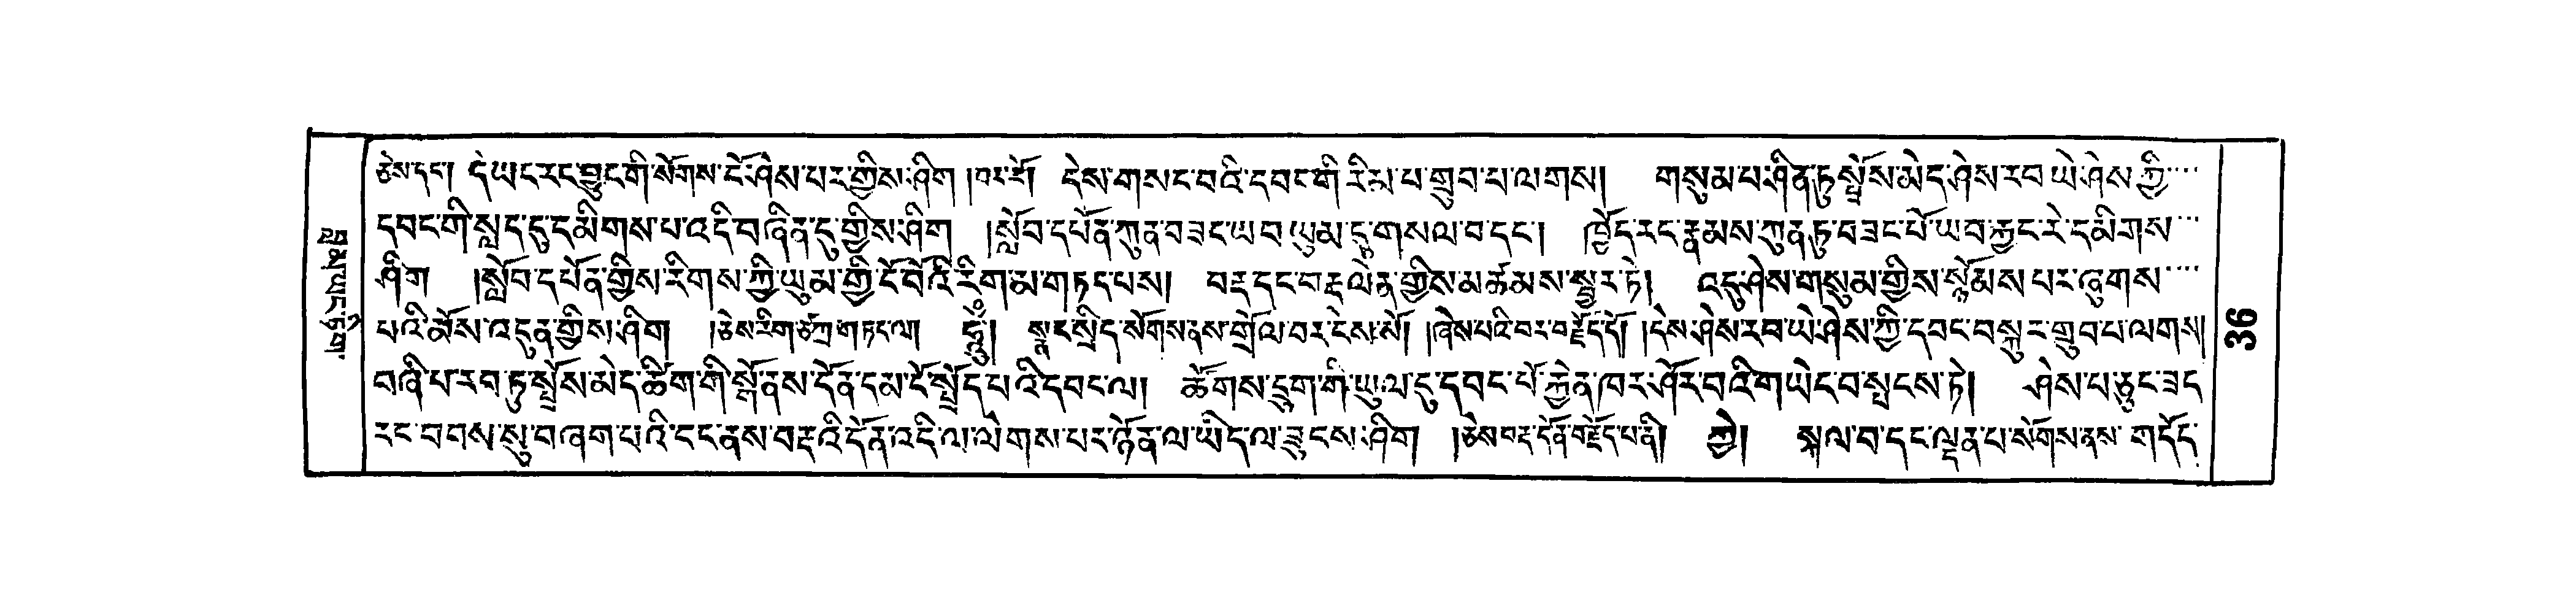 ཅེས་དང་། དེ་ཡང་རང་བྱུང་གི་སོགས་ངོ་ཤེས་པར་གྱིས་ཤིག །བར་རོ། དེས་གསང་བའི་དབང་གི་རིམ་པ་གྲུབ་པ་ལགས། གསུམ་པ་ཤིན་ཏུ་སྤྲོས་མེད་ཤེས་རབ་ཡེ་ཤེས་ཀྱི་
དབང་གི་སླད་དུ་དམིགས་པ་འདི་བཞིན་དུ་གྱིས་ཤིག །སློབ་དཔོན་ཀུན་བཟང་ཡབ་ཡུམ་དུ་གསལ་བ་དང་། ཁྱོད་རང་རྣམས་ཀུན་ཏུ་བཟང་པོ་ཡབ་རྐྱང་རེ་དམིགས་
ཤིག །སློབ་དཔོན་གྱིས་རིགས་ཀྱི་ཡུམ་གྱི་ངོ་བོའི་རིག་མ་གཏད་པས། བརྡ་དང་བརྡ་ལེན་གྱིས་མཚམས་སྦྱར་ཏེ། འདུ་ཤེས་གསུམ་གྱིས་སྙོམས་པར་ཞུགས་
པའི་མོས་འདུན་གྱིས་ཤིག །ཅེས་རིག་ཙཀྲ་གཏད་ལ། ཧཱུྃ། སྣང་སྲིད་སོགས་ནས་གྲོལ་བར་ངེས་སོ། །ཞེས་པའི་བར་བརྗོད་དོ། །དེས་ཤེས་རབ་ཡེ་ཤེས་ཀྱི་དབང་བསྐུར་གྲུབ་པ་ལགས།
བཞི་པ་རབ་ཏུ་སྤྲོས་མེད་ཚིག་གི་སྒོ་ནས་དོན་དམ་ངོ་སྤྲོད་པའི་དབང་ལ། ཚོགས་དྲུག་གི་ཡུལ་དུ་དབང་པོ་རྐྱེན་ཁར་ཤོར་བའི་གཡེང་བ་སྤངས་ཏེ། ཤེས་པ་ཅུང་ཟད་
རང་བབས་སུ་བཞག་པའི་ངང་ནས་བརྡའི་དོན་འདི་ལ་ལེགས་པར་ཉོན་ལ་ཡིད་ལ་ཟུངས་ཤིག །ཅེས་བརྡ་དོན་བརྗོད་པ་ནི། ཀྱེ། སྐལ་བ་དང་ལྡན་པ་སོགས་ནས་གདོད་